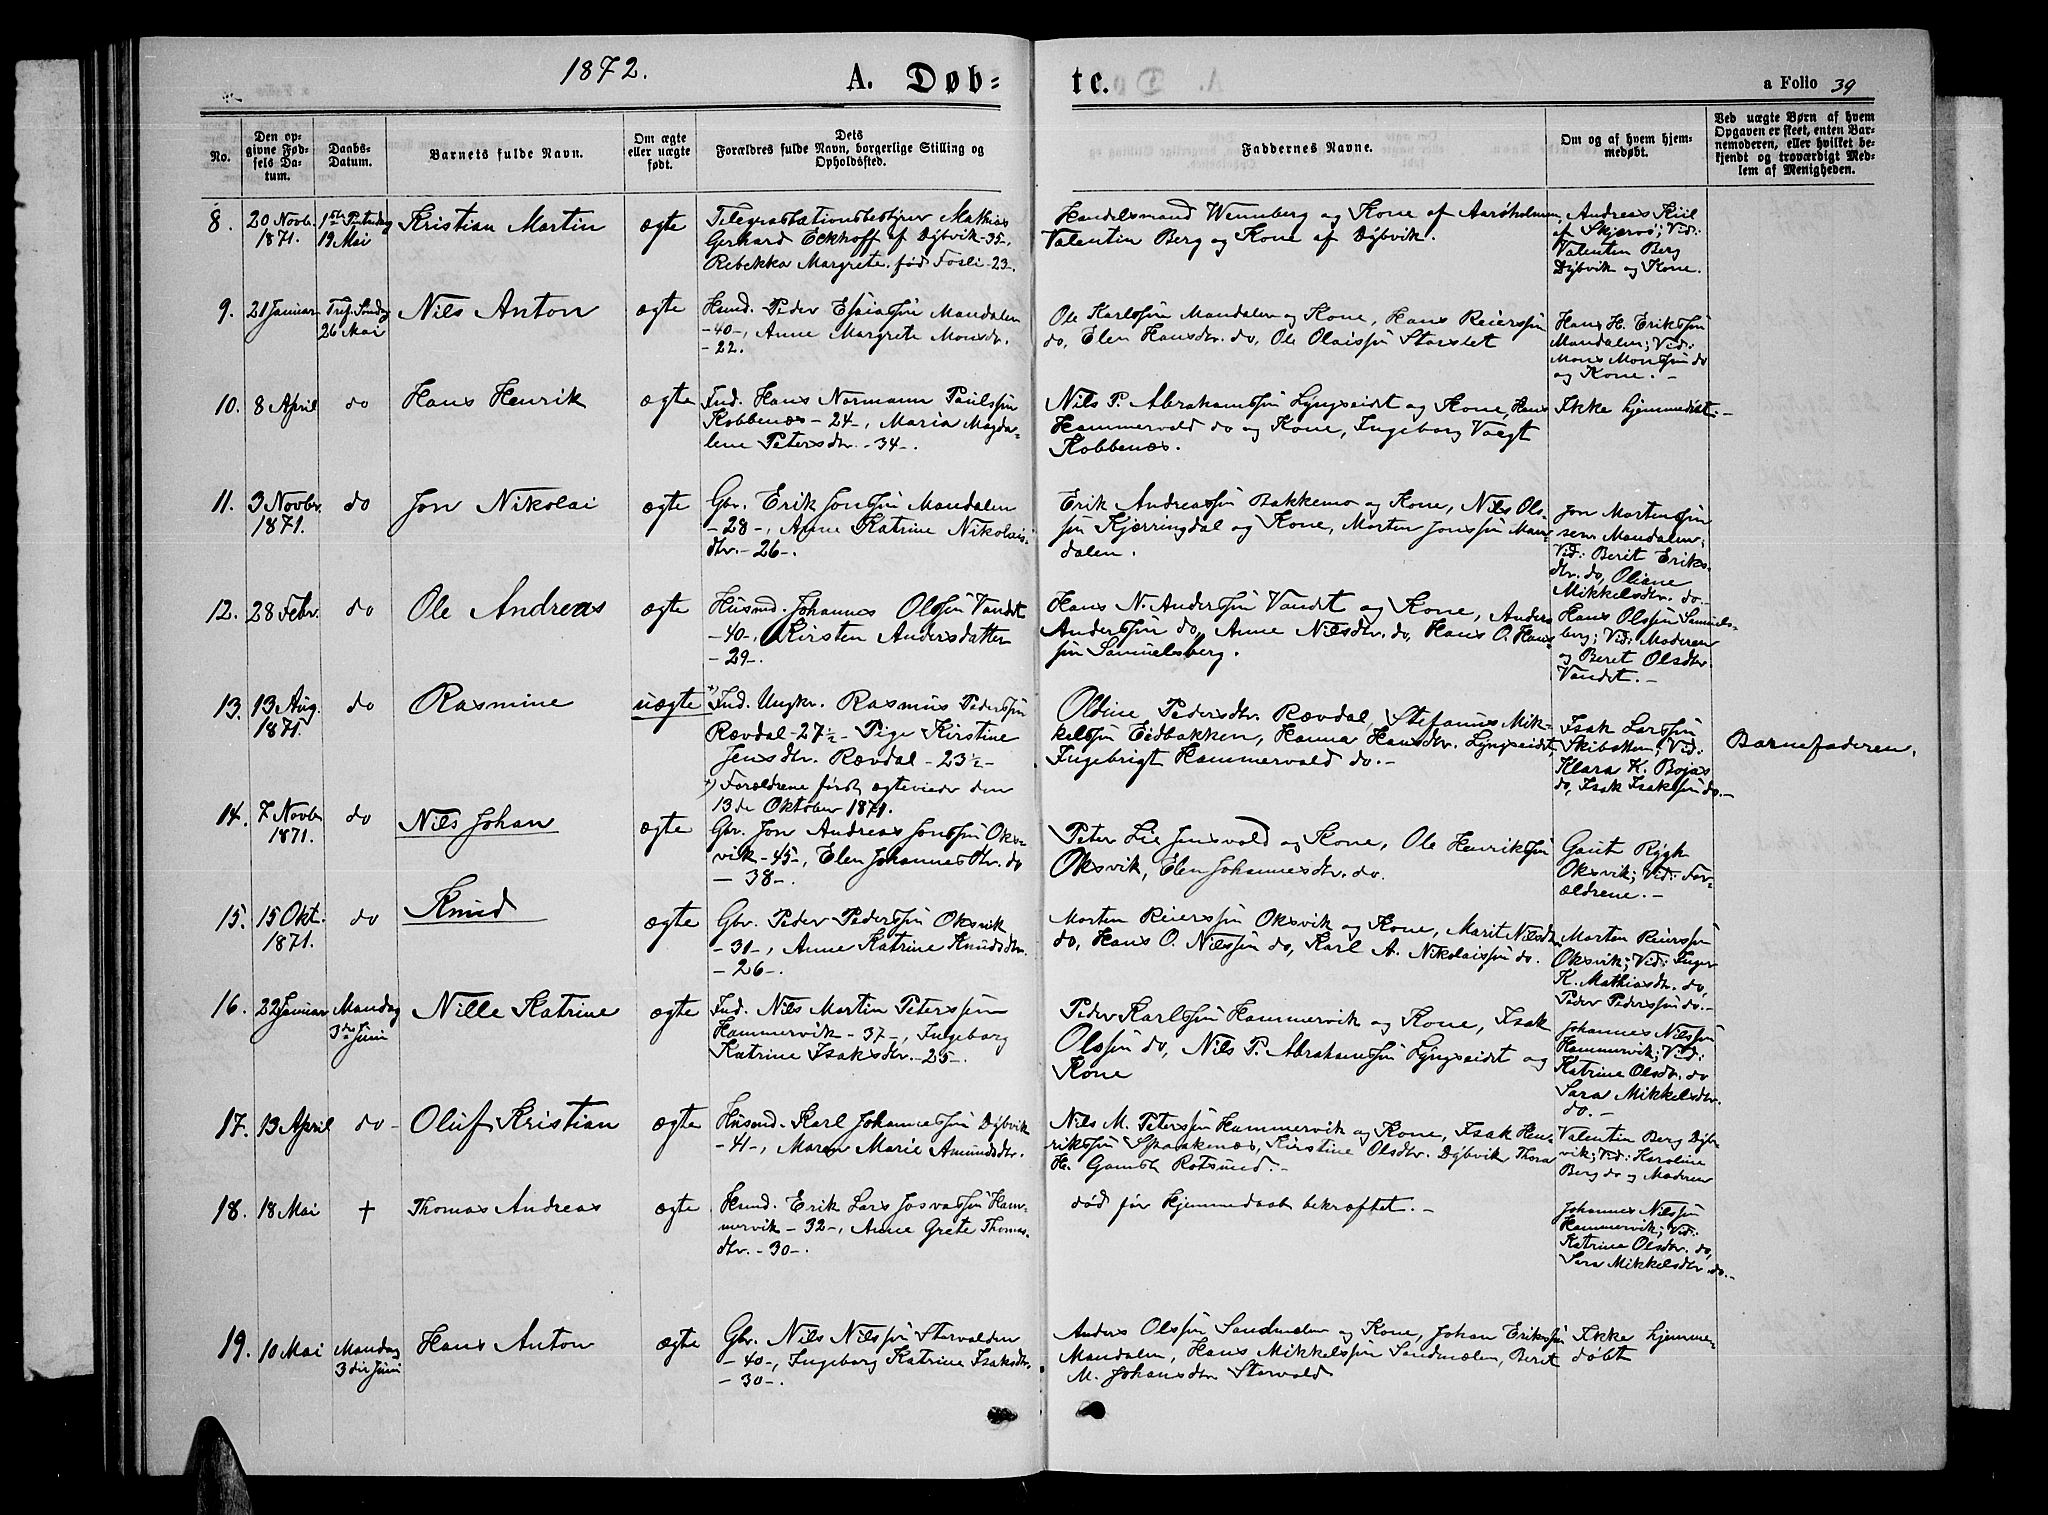 1872.
A. Døb-
te.
a Folio 39
No.
Den op-
givne Fød-
sels Da-
tum.
Daabs-
Datum.
Barnets fulde Navn.
Om ægte
eller uægte
født.
Dets
Forældres fulde Navn, borgerlige Stilling og
Opholdssted.
Faddernes Navne.
Om og af hvem hjem-
medøbt.
Ved uægte Børn af hvem
Opgaven er skeet, enten Bar-
nemoderen, eller hvilket be-
kjendt og troværdigt Med-
lem af Menigheden.
8.
20 Novb.
1871.
19 Mai
Kristian Martin
ægte
Telegrafstationsbestyrer Mathias
Gerhard Eckhoff af Dybvik -35-,
Rebekka Margrete født Fosli -23-.
Handelsmand Wennberg og Kone af Aarøholmen,
Valentin Berg og Kone af Dybvik.
Andreas Kiil
af Skjervø; Vid:
Valentin Berg
Dybvik og Kone.
9.
21 Januar
Tref. Søndag
26 Mai
Nils Anton
ægte
Husmd. Peder Esaiassøn Mandalen
-40-, Anne Margrete Monsdr.
-22.
Ole Karlsøn Mandalen og Kone, Hans Reierssøn
do, Elen Hansdtr. do, Ole Olaissøn Storslet
Hans H. Erikssøn
Mandalen; Vid:
Mons Monssøn do
og Kone.-
10.
8 April
do
Hans Henrik
ægte
Ind. Hans Normann Paulssøn
Kobbenæs -24-, Maria Magda-
lene Petersdtr. -34-.
Nils P. Abrahamssøn Lyngseidet og Kone, Hans
Hammervold do og Kone, Ingeborg Voigt
Kobbenæs.
Ikke hjemmedøbt.-
11.
3 Novbr.
1871.
do
Jon Nikolai
ægte
Gbr. Erik Jonssøn Mandalen
-28-, Anne Katrine Nikolais-
dtr. -26-.
Erik Andreassøn Bakkemo og Kone, Nils Ols-
søn Kjærringdal og Kone, Morten Jonssøn Man-
dalen.
Jon Mortenssøn
sen. Mandalen;
Vid: Berit Eriks-
dtr. do, Oliane
Mikkelsdtr. do-
12.
28 Febr.
do
Ole Andreas
ægte
Husmd. Johannes Olssøn Vandet
-40-, Kirsten Andersdatter
-29-.
Hans N. Anderssøn Vandet og Kone, Anders
Anderssøn do, Anne Nilsdtr. do, Hans O. Hans-
søn Samuelsberg.
Hans Olssøn Samuels-
berg; Vid: Moderen
og Beret Olsdtr.
Vandet.-
13.
13 Aug.
1871.
do
Rasmine
uægte
*) Ind. Ungkr. Rasmus Pederssøn
Rævdal -27½- Pige Kirstine
Jensdtr. Rævdal -23½-
*) Forældrene først ægteviede den
13de Oktober 1871.
Oldine Pedersdtr. Rævdal, Stefanus Mik-
kelssøn Eidbakken, Hanna Hansdtr. Lyngseidet,
Ingebrigt Hammervold do.-
Isak Larssøn
Skibotten; Vid:
Klara K. Bojas
do, Isak Isakssøn do.-
Barnefaderen.
14.
7 Novbr
1871.
do
Nils Johan
ægte
Gbr. Jon Andreas Jonssøn Oks-
vik -45-, Elen Johannesdtr. do
-38-.
Peter Lie Jensvold og Kone, Ole Henrikssøn
Oksvik, Elen Johannesdtr. do.
Gaut Rygh
Oksvik; Vid: For-
ældrene.-
15.
15 Okt.
1871.
do
Knud
ægte
Gbr. Peder Pederssøn Oksvik
-31-, Anne Katrine Knudsdtr.
-26-.
Morten Reierssøn Oksvik og Kone, Marit Nilsdtr.
do, Hans O. Nilssøn do, Karl A. Nikolaissøn do.
Morten Reierssøn
Oksvik; Vid: Inger
K. Mathiasdtr. do,
Peder Pederssøn do.-
16.
22 Januar
Mandag
3die Juni
Nille Katrine
ægte
Ind. Nils Martin Peterssøn
Hammervik -37-, Ingeborg
Katrine Isaksdtr. -25-.
Peder Karlssøn Hammervik og Kone, Isak
Olssøn do, Nils P. Abrahamssøn Lyngseidet og
Kone
Johannes Nilssøn
Hammervik; Vid:
Katrine Olsdtr. do
Sara Mikkelsdtr.
do.-
17.
13 April
do-
Oluf Kristian
ægte
Husmd. Karl Johannessøn Dybvik
-41-, Maren Marie Amundsdtr.
Nils M. Peterssøn Hammervik og Kone, Isak Hen-
rikssøn Spaakenæs, Kirstine Olsdtr. Dybvik, Thora
H. Gamst Rotsund.-
Valentin Berg Dyb-
vik; Vid: Karoline
Berg do og Moderen
18.
18 Mai
†
Thomas Andreas
ægte
Husmd. Erik Lars Josvassøn Ham-
mervik -32-, Anne Grete Thomas-
dtr. -30-.
død før Hjemmedaab bekræftet.-
Johannes Nilssøn
Hammervik; Vid:
Katrine Olsdtr. do,
Sara Mikkelsdtr. do.-
19.
10 Mai
Mandag
3die Juni
Hans Anton
ægte
Gbr. Nils Nilssøn Storvolden
-40-, Ingeborg Katrine Isaksdtr.
-30-.
Anders Olssøn Sandmelen og Kone, Johan Erikssøn
Mandalen, Hans Mikkelssøn Sandmælen, Berit
M. Johansdtr Storvold
Ikke hjemme-
døbt